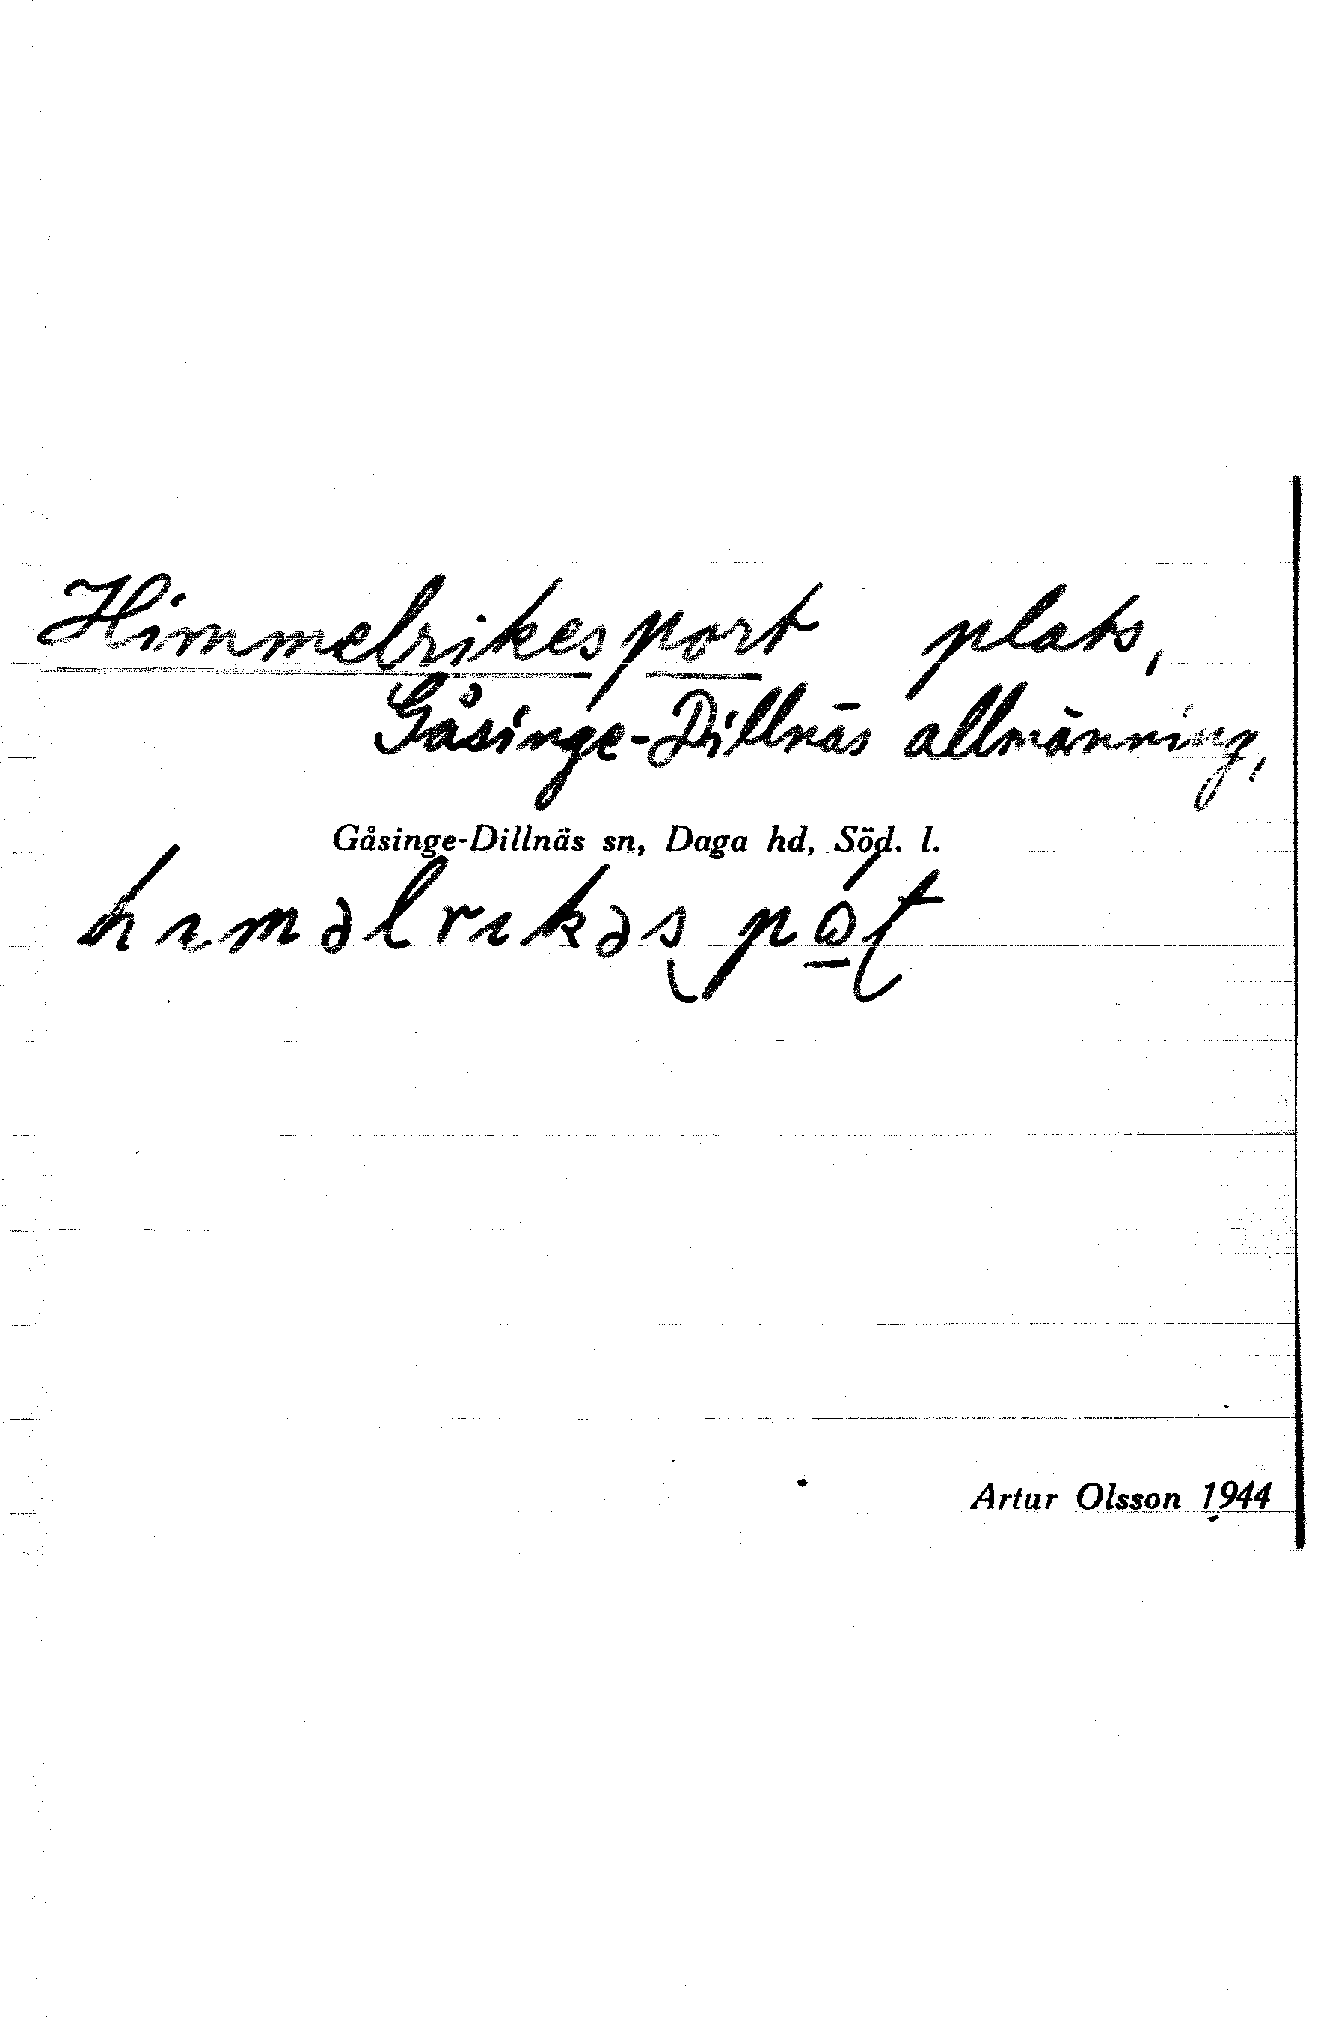 Himmelrikesport plats,
Gåsinge-Dillnäs allmänning,
Gåsinge-Dillnäs sn, Daga hd, Söd. l.
hɪməlrɪkəs
Artur Olsson 1944